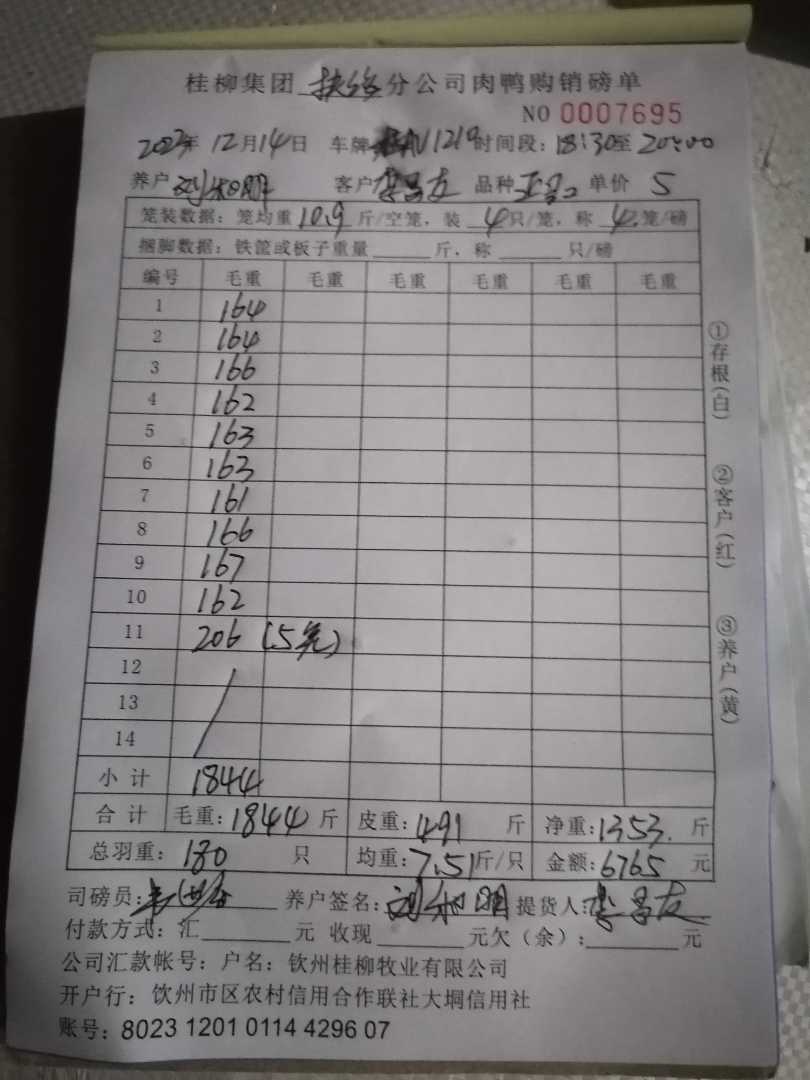 桂柳集团扶绥分公司肉鸭购销磅单
NO 0007695
2023年12月14日 车牌 1219 时间段：18:30至20:00
养户 刘和明 客户 李昌友 品种 单价 5
笼装数据：笼均重10.9斤/空笼，装 4只/笼，称 4.笼/磅
捆脚数据：铁筐或板子重量＿＿＿斤，称＿＿＿只/磅
编号 毛重 毛重 毛重 毛重 毛重 毛重
1 164
2 164
3 166
4 162
5 163
6 163
7 161
8 166
9 167
10 162
11 206 (5笼)
12
13
14
小计 1844
合计 毛重：1844斤 皮重：491 斤 净重：1353. 斤
总羽重：180 只 均重：7.51斤/只 金额：6765 元
司磅员： 养户签名：刘和明 提货人：李昌友
付款方式：汇＿＿＿元 收现＿＿＿元欠（余）：＿＿＿元
公司汇款帐号：户名：钦州桂柳牧业有限公司
开户行：钦州市区农村信用合作联社大垌信用社
账号：8023 1201 0114 4296 07
①存根（白）
②客户（红）
③养户（黄）